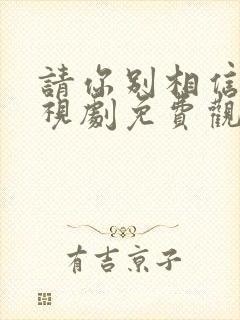 請你別相信
視劇免費觀
有吉京子